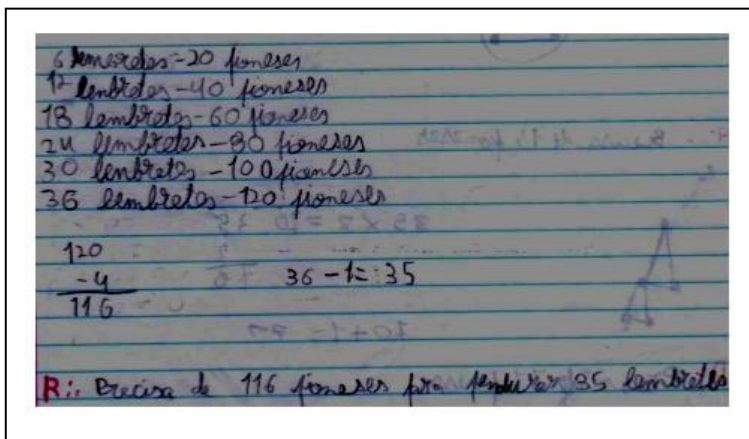 6 lembretes - 20 pioneses
12 lenbretes - 40 pioneses
18 lembretes - 60 pioneses
24 lembretes - 80 pioneses
30 lembretes - 100 pioneses
36 lembretes - 120 pioneses
120
-4
116
36 - 1 = 35
R:. Precisa de 116 pioneses pra pendurar 35 lembretes